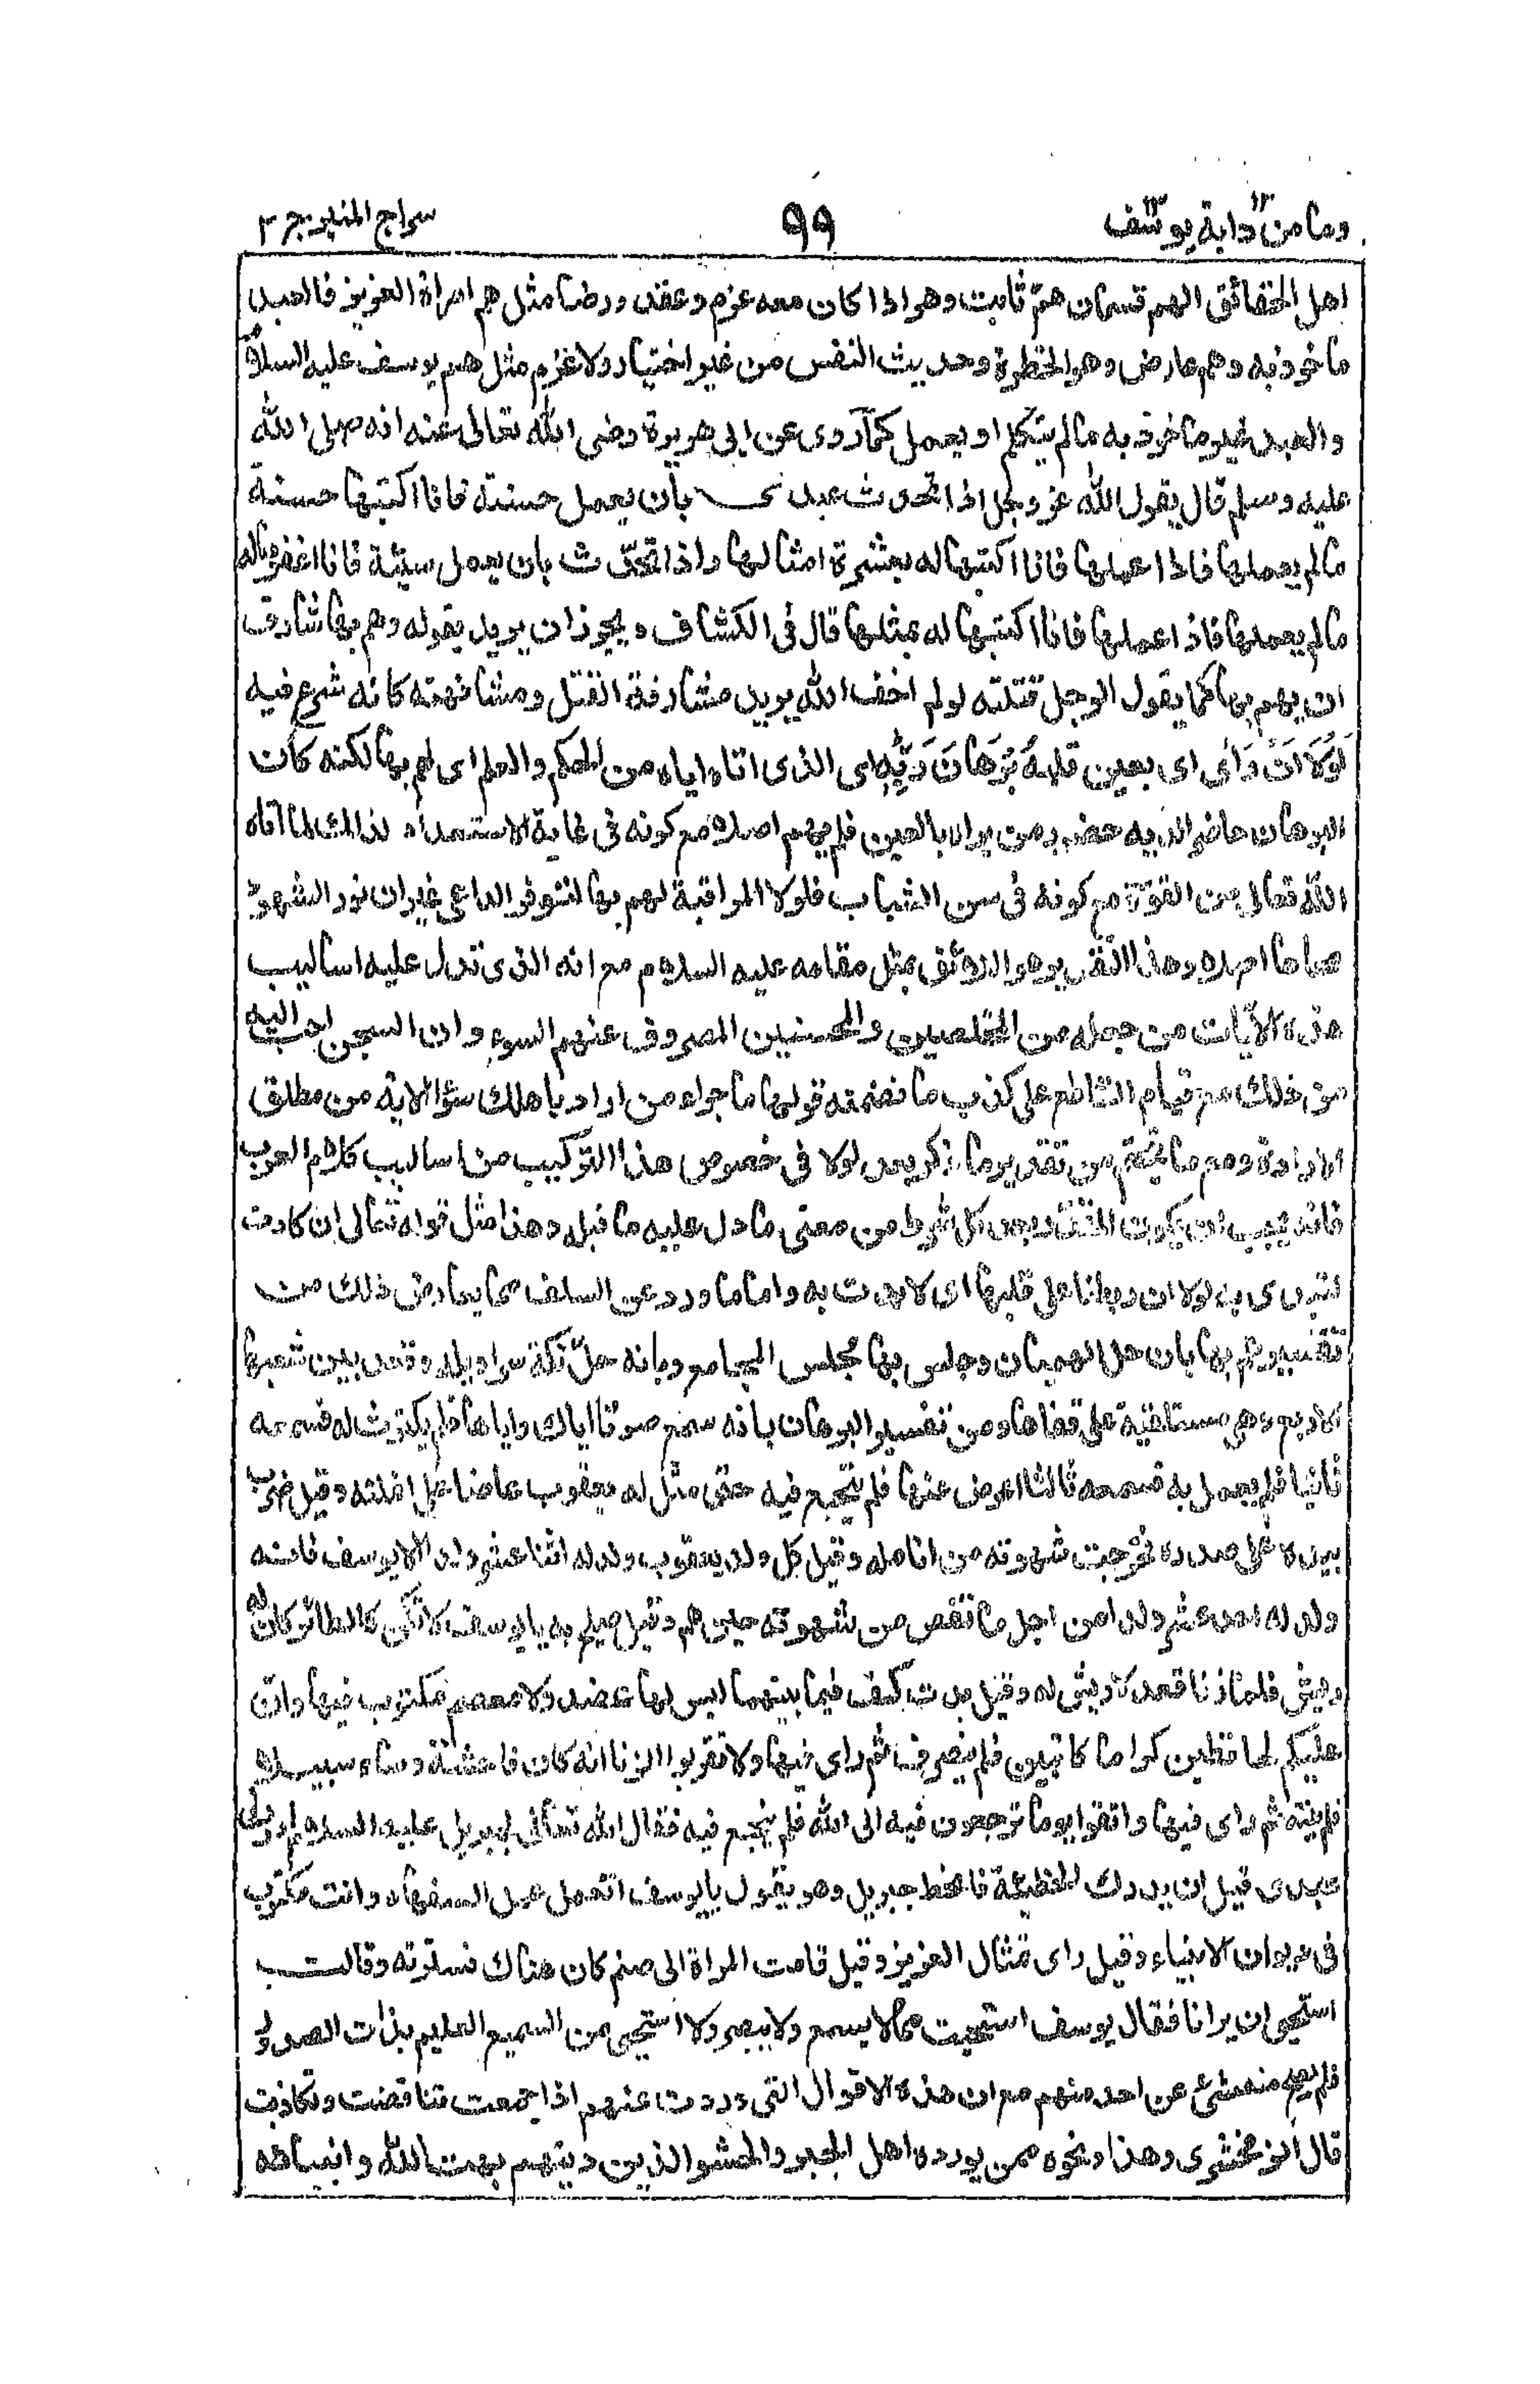 وما من دابة ١٢ يوسف ١٢
٩٩
سراج المنير ج ٢
اهل الحقائق الهم قسمان هم ثابت وهو اذا كان معه عزم وعقد ورضا مثل هم امراة العزيز فالعبد
ماخوذ به وهم عارض وهو الخطرة وحديث النفس من غير اختيار ولا عزم مثل هم يوسف عليه السلام
والعبد غير ماخوذ به مالم يتكلم او يعمل كما روى عن ابى هريرة رضى الله تعالى عنه انه صلى الله
عليه وسلم قال يقول الله عز وجل اذا تحدث عبدى بأن يعمل حسنته فانا اكتبها حسنة
مالم يعملها فاذا عملها فانا اكتبها له بعشرة امثالها واذا تحدّث بان يعمل سيئة فانا اغفرها له
مالم يعملها فاذا عملها فانا اكتبها له بمثلها قال فى الكشاف ويجوز ان يريد بقوله وهم بها شارف
ان يهم بها كما يقول الرجل قتلته لو لم اخف الله يريد مشارفة القتل ومشافهته كانه شرع فيه
لَوْلَا اَنْ رَاٰى اى بعين قلبه بُرْهَانَ رَبِّهٖ اى الذى اتاه اياه من الحكم والعلم اى لهم بها لكنه كان
البرهان حاضرا لديه حضور من يراه بالعين فلم يهم اصلا مع كونه فى غاية الاستعداد لذالك لما اتاه
الله تعالى من القوّة مع كونه فى سن الشباب فلولا المراقبة لهم بها لتوفر الداعى غير ان نور الشهود
محاها اصلا وهذا التقدير هو اللائق بمثل مقامه عليه السلام مع انه الذى تدل عليه اساليب
هذه الآيات من جعله من المخلصين والمحسنين المصروف عنهم السوء وان السجن احب اليه
من ذلك مع قيام القاطع على كذب ما تضمنته قولها ما جزاء من اراد باهلك سؤا الاية من مطلق
الارادة ومع ما تحتم من تقدير ما ذكر بعد لولا فى خصوص هذا التركيب من اساليب كلام العرب
فانه يجب ان يكون المقدّر بعد كل شرط من معنى ما دل عليه ما قبله وهذا مثل قوله تعالى ان كادت
لتبدى به لولا ان ربطنا على قلبها اى لابدت به واما ما ورد عن السلف مما يعارض ذلك من
تفسير هم بها بان حل الهميان وجلس بها مجلس المجامع وبانه حلّ تكة سراويله وقعد بين شعبها
الاربع وهى مستلقية على قفاها ومن تفسير البرهان بانه سمع صوتا اياك واياها فلم يكترث له فسمعه
ثانيا فلم يعمل به فسمعه ثالثا اعرض عنها فلم ينجع فيه حتى مثّل له يعقوب عاضا على انملته وقيل ضرب
بيده على صدره فخرجت شهوته من انامله وقيل كل ولد يعقوب ولد له اثنا عشر ولدا الا يوسف فانه
ولد له احد عشر ولدا من اجل ما نقص من شهوته حين هم وقيل صيح به يا يوسف لا تكن كالطائر كان له
ريش فلما زنا قعد لا ريش له وقيل بدت كف فيما بينهما ليس لها عضد ولا معصم مكتوب فيها وان
عليكم لحافظين كراما كاتبين فلم ينصرف ثم راى فيها ولا تقربوا الزنا انه كان فاحشة وساء سبيلا
فلم ينته ثم راى فيها واتقوا يوما ترجعون فيه الى الله فلم ينجع فيه فقال الله تعالى لجبريل عليه السلام ادرك
عبدى قبل ان يدرك الخطيئة فانحط جبريل وهو يقول يا يوسف اتعمل عمل السفهاء وانت مكتوب
فى ديوان الانبياء وقيل راى تمثال العزيز وقيل قامت المراة الى صنم كان هناك فسترته وقالت
استحيى ان يرانا فقال يوسف استحييت مما لا يسمع ولا يبصر ولا استحيى من السميع العليم بذات الصدور
فلم يصح منه شئ عن احد منهم مع ان هذه الاقوال التى وردت عنهم اذا جمعت تناقضت وتكاذبت
قال الزمخشرى وهذا ونحوه ممن يورده اهل الجبر والحشو الذين دينهم بهت الله وانبيائه